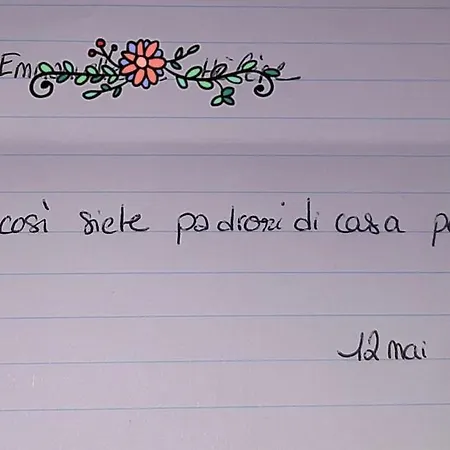 così siete padroni di casa
12 mai